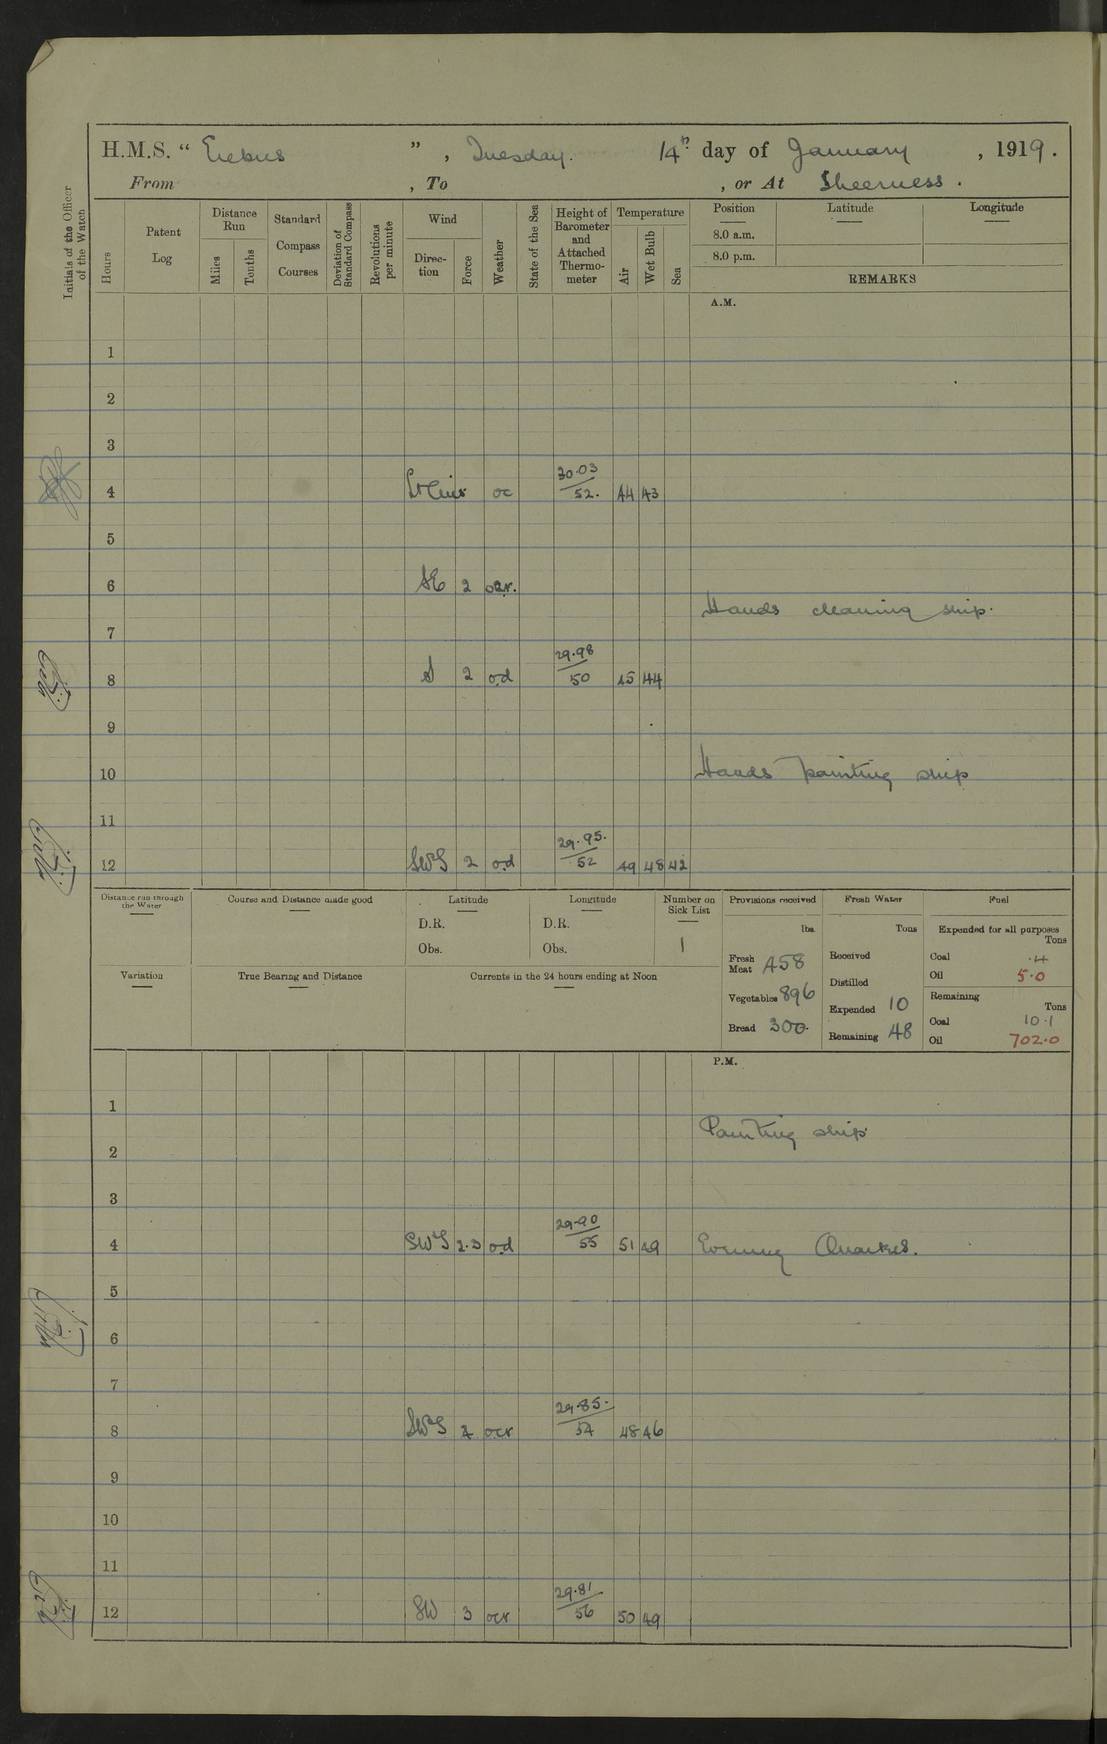 H.M.S. “ Erebus ” , Tuesday. 14th day of January , 1919.
From , To , or At Sheerness .
Initials of the Officer of the Watch
Hours
Patent Log
Distance Run
Miles
Tenths
Standard Compass Courses
Deviation of Standard Compass
Revolutions per minute
Wind
Direc-tion
Force
Weather
State of the Sea
Height of Barometer and Attached Thermo-meter
Temperature
Air
Wet Bulb
Sea
Position Latitude Longitude
8.0 a.m.
8.0 p.m.
REMARKS
A.M.
1
2
3
4 Lt airs oc 30.03/52. 44 43
5
6 SE 2 ocr.
Hands cleaning ship.
7
8 S 2 o.d 29.98/50 45 44
9
10 Hands painting ship
11
12 SWS 2 o.d 29.95./52 49 48 42
Distance run through the Water
Course and Distance made good
Latitude
D.R.
Obs.
Longitude
D.R.
Obs.
Number on Sick List
1
Variation
True Bearing and Distance
Currents in the 24 hours ending at Noon
Provisions received
lbs.
Fresh Meat 458
Vegetables 896
Bread 300.
Fresh Water
Tons
Received
Distilled
Expended 10
Remaining 48
Fuel
Expended for all purposes
Tons
Coal .4
Oil 5.0
Remaining
Tons
Coal 10.1
Oil 702.0
P.M.
1
Painting ship
2
3
4 SWS 2.3 o.d 29.90/55 51 49 Evening Quarters.
5
6
7
8 SWS 4 ocr 29.85./54 48 46
9
10
11
12 SW 3 ocr 29.81/56 50 49